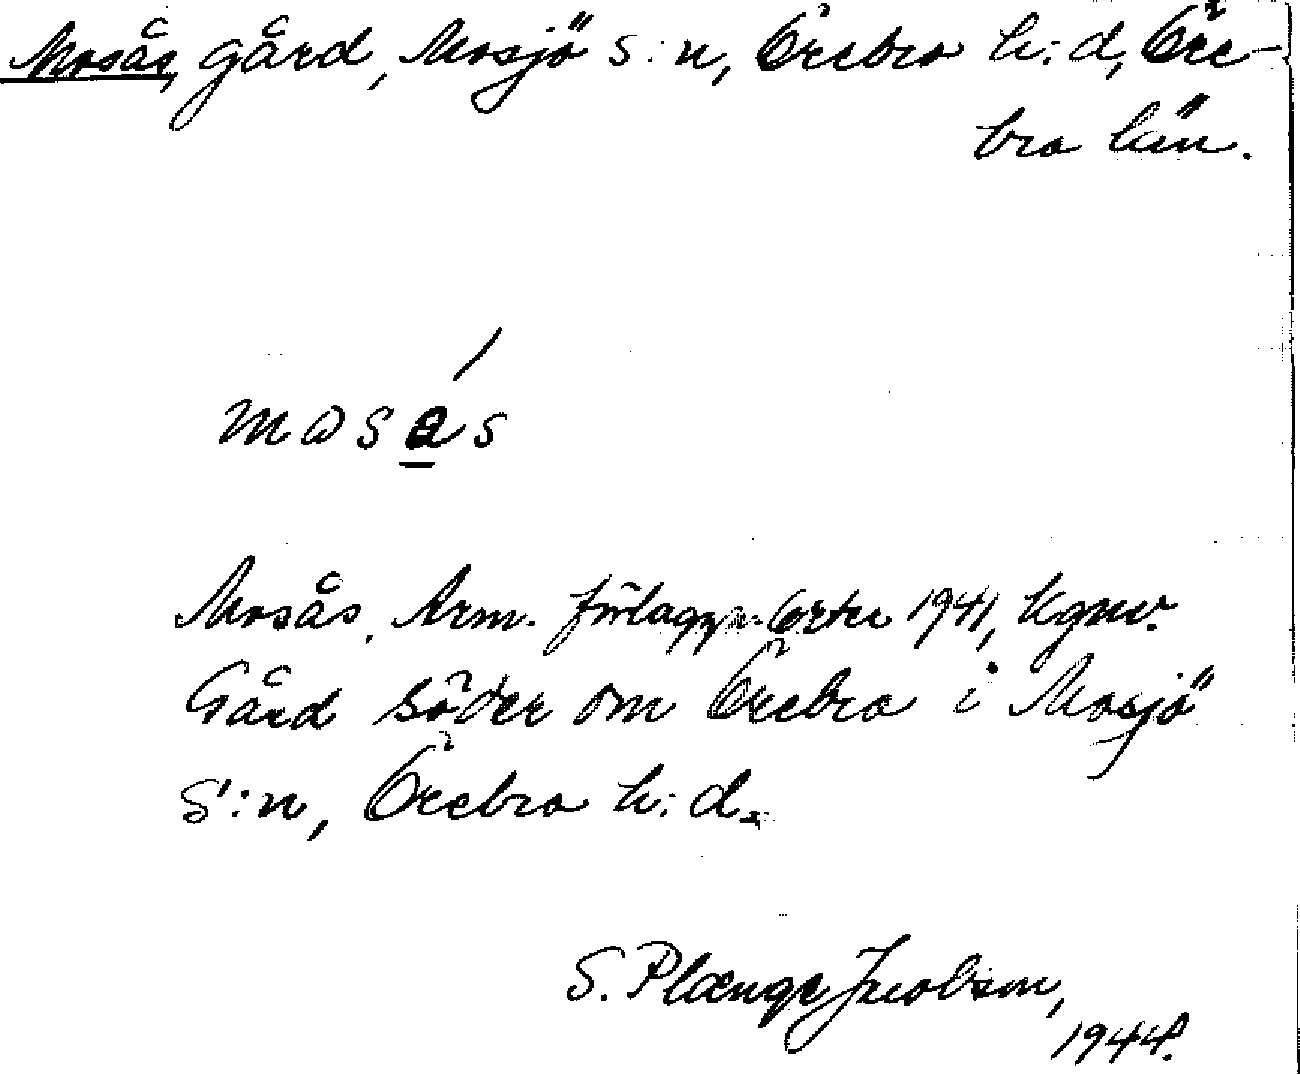 Mosås, gård, Mosjö s:n, Örebro h:d, Öre-
bro län.
mɷsás
Mosås. Arm. förläggn. Orter 1941,
Gård söder om Örebro i Mosjö
S:n, Örebro h:d.
S. Plænge Jacobson,
1944.